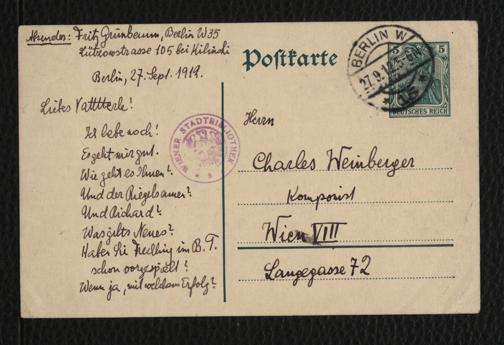 Absender: Fritz Grünbaum, Berlin W35
Lützowstrasse 105 bei Kilinski
Berlin, 27. Sept. 1912.
Liebes Vatterle!
Ich lebe noch!
Es geht mir gut.
Wie geht es Ihnen?
Und der Riegelsamer?
Und Richard?
Was gibts Neues?
Haben Sie Fredling im B.T.
schon vorgespielt?
Wenn ja, mit welchem Erfolg?
WIENER STADTBIBLIOTHEK
Postkarte
BERLIN W
27.9.12.5-6N
* 35 *
5 5
DEUTSCHES REICH
Herrn
Charles Weinberger
Komponist
Wien VIII
Langegasse 72